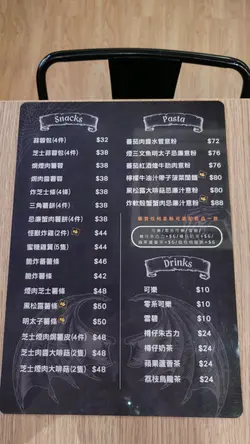 Snacks
蒜蓉包(4件) $32
芝士蒜蓉包(4件) $38
$38
$38
炸芝士條(4條) $38
三角薯餅(4件) $38
忌廉蟹肉薯餅(4件) $38
怪獸炸雞(2件) $44
蜜糖雞翼(5隻) $44
脆炸薯條 $44
脆炸薯格 $44
煙肉芝士薯條 $48
黑松露薯條 $50
明太子薯條 $50
芝士煙肉焗薯皮(4件) $48
芝士肉醬大啡菇(2隻) $48
芝士煙肉大啡菇(2隻) $48
Pasta
$72
煙三文魚明太子忌廉意粉 $76
蕃茄紅酒燴牛肋肉意粉 $76
$80
黑松露大啡菇忌廉汁意粉 $80
炸軟殼蟹蟹肉忌廉汁意粉 $88
Drinks
可樂 $10
零系可樂 $10
雪碧 $10
樽仔朱古力 $24
樽仔奶茶 $24
蘋果蘆薈茶 $24
荔枝烏龍茶 $24